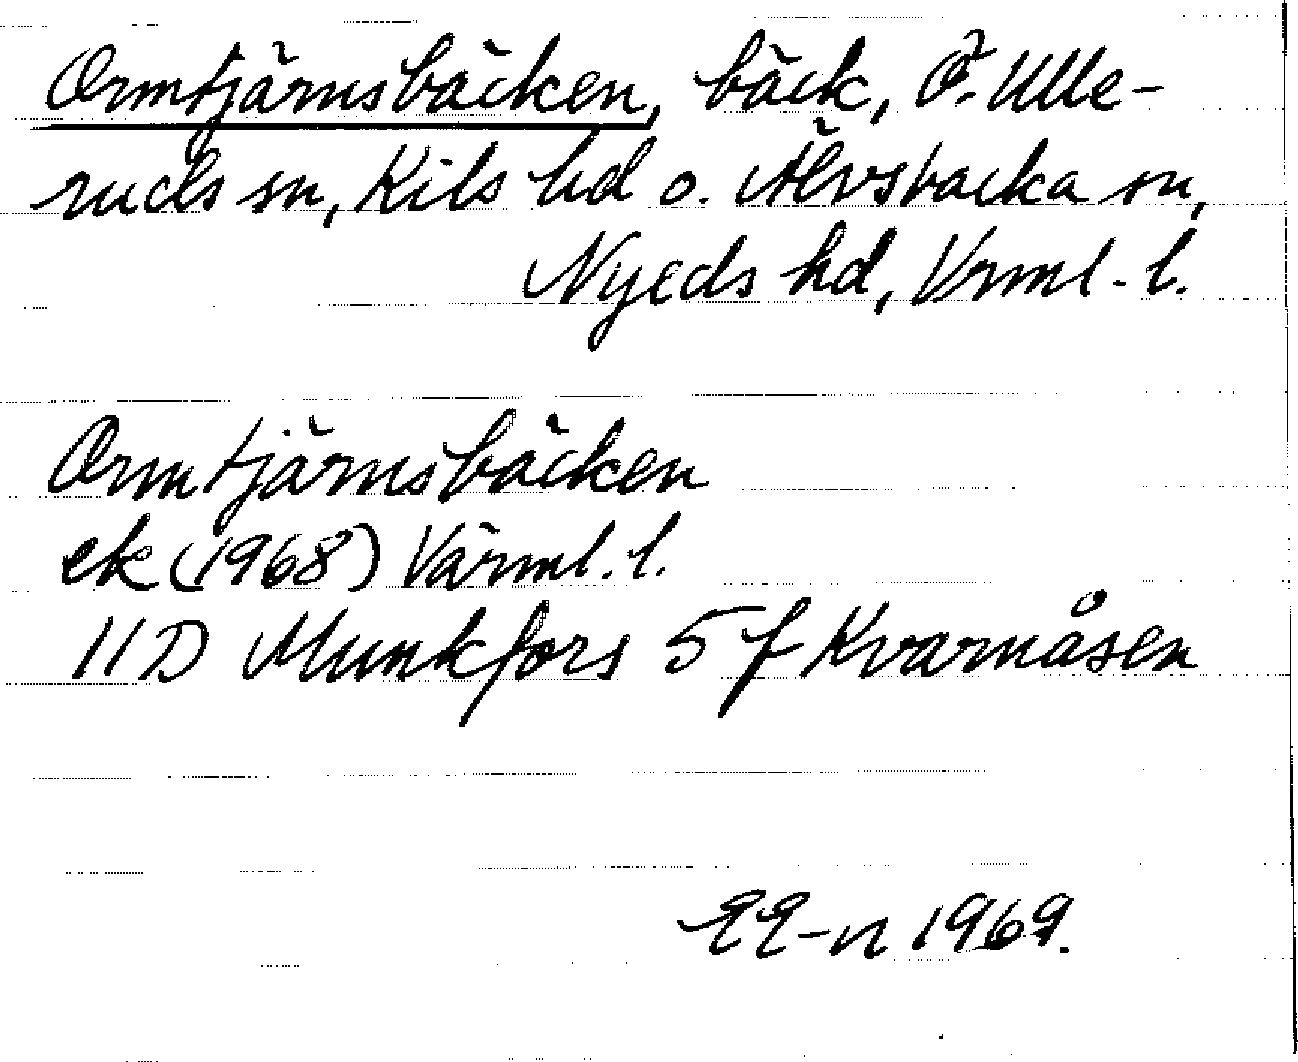 Ormtjärnsbäcken, bäck, Ö. Ulle-
ruds sn, Kils hd o. Älvsbacka sn,
Nyeds hd, Vrml. l.
Ormtjärnsbäcken
ek (1968) Värml. l.
11D Munkfors 5 f Kvarnåsen
EE-n 1969.